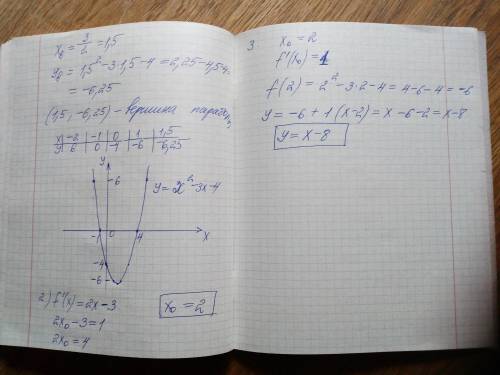 x₀ = 3/2 = 1,5
y₀ = 1,5² - 3·1,5 - 4 = 2,25 - 4,5 - 4
= -6,25
(1,5; -6,25) - вершина параболы
x | -2 | -1 | 0 | 1 | 1,5
y | 6 | 0 | -4 | -6 | -6,25
y
6
y = x² - 3x - 4
-1 0 4 x
-4
-6
2) f'(x) = 2x - 3
2x₀ - 3 = 1
2x₀ = 4
x₀ = 2
3 x₀ = 2
f'(x₀) = 1
f(2) = 2² - 3·2 - 4 = 4 - 6 - 4 = -6
y = -6 + 1(x - 2) = x - 6 - 2 = x - 8
y = x - 8